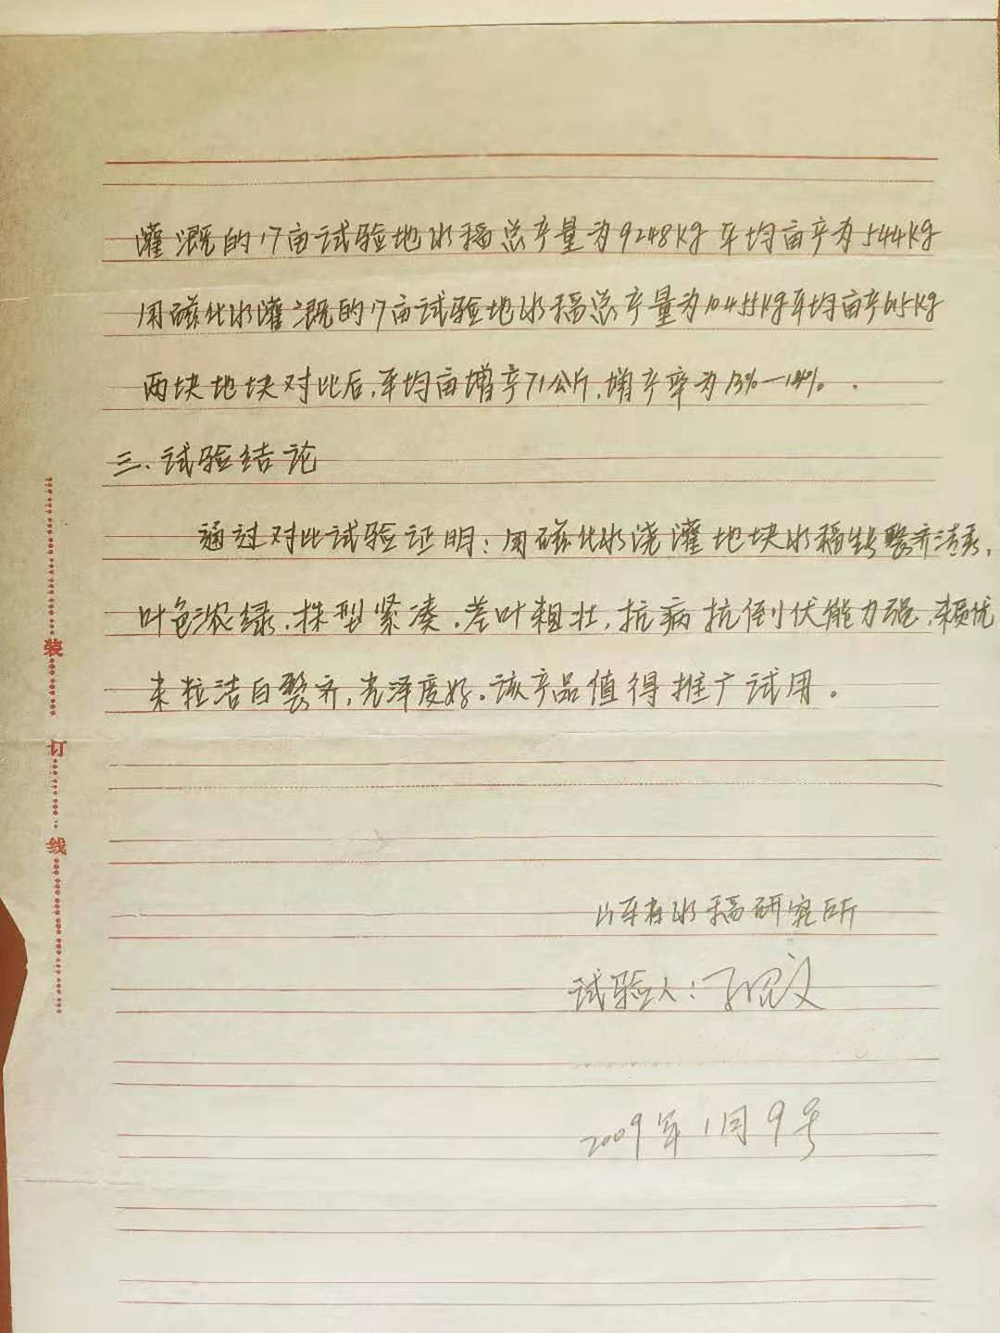 灌溉的17亩试验地水稻总产量为9248kg平均亩产为544kg
用磁化水灌溉的17亩试验地水稻总产量为10455kg平均亩产615kg
两块地块对比后,平均亩增产71公斤,增产率为13%—14%.
三、试验结论
通过对比试验证明:用磁化水浇灌地块水稻生长整齐清秀,
叶色浓绿,株型紧凑,茎叶粗壮,抗病抗倒伏能力强,米质优
米粒洁白整齐,光泽度好。该产品值得推广试用。
山东省水稻研究所
试验人:
2009年1月9号
装
订
线